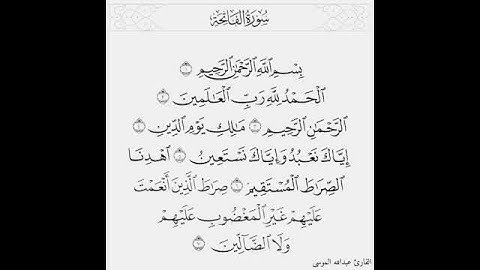 سُورَةُ الْفَاتِحَةِ
بِسْمِ ٱللَّهِ ٱلرَّحْمَٰنِ ٱلرَّحِيمِ ١
ٱلْحَمْدُ لِلَّهِ رَبِّ ٱلْعَٰلَمِينَ ٢
ٱلرَّحْمَٰنِ ٱلرَّحِيمِ ٣ مَٰلِكِ يَوْمِ ٱلدِّينِ ٤
إِيَّاكَ نَعْبُدُ وَإِيَّاكَ نَسْتَعِينُ ٥ ٱهْدِنَا
ٱلصِّرَٰطَ ٱلْمُسْتَقِيمَ ٦ صِرَٰطَ ٱلَّذِينَ أَنْعَمْتَ
عَلَيْهِمْ غَيْرِ ٱلْمَغْضُوبِ عَلَيْهِمْ
وَلَا ٱلضَّآلِّينَ ٧
القارئ عبدالله الموسى